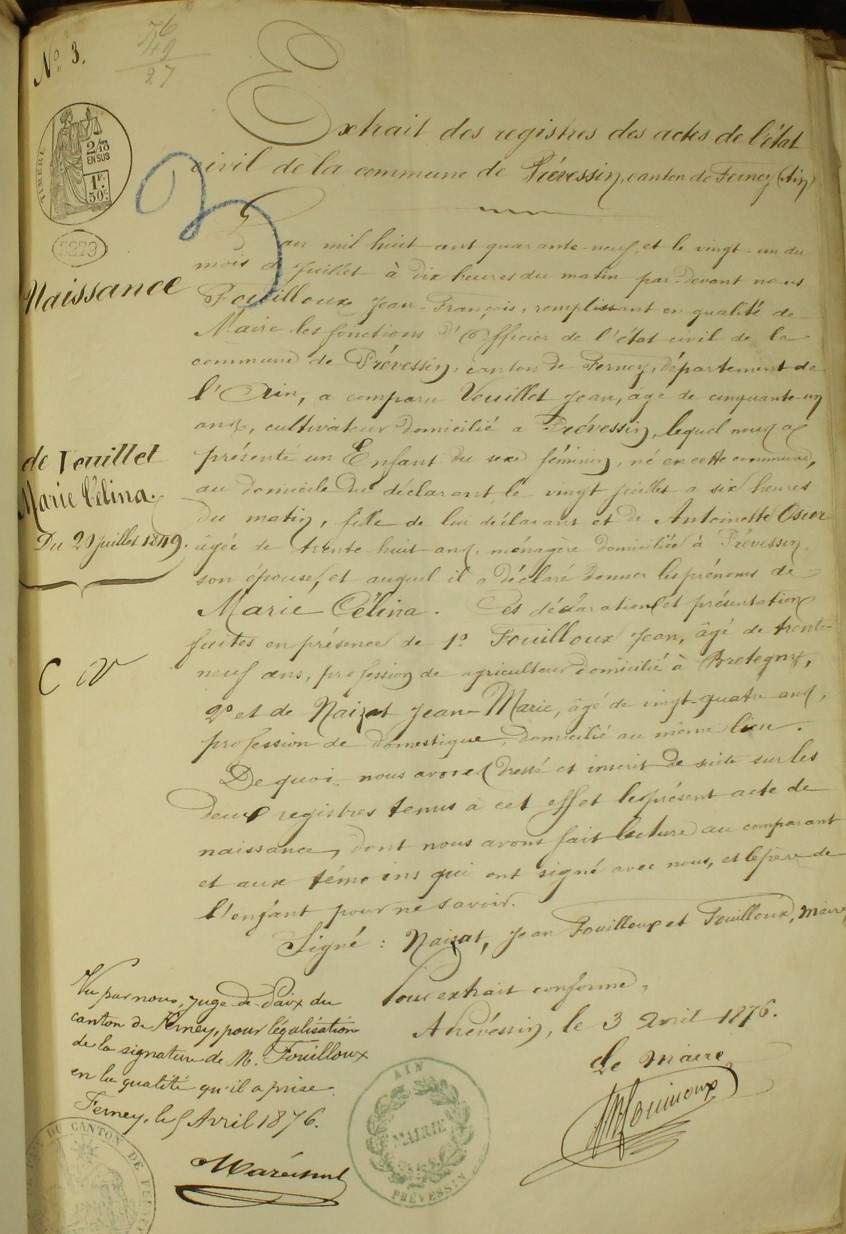 N° 3.
76
49
27
TIMBRE
2/10
EN SUS
1F.
50c.
Extrait des registres des actes de l'état
civil de la commune de Prévessin, canton de Ferney (Ain)
3
Naissance
de Veuillet
Marie Célina.
Du 20 Juillet 1849.
L'an mil huit cent quarante-neuf, et le vingt-un du
mois de Juillet à dix heures du matin par-devant nous
Fouilloux Jean-François, remplissant en qualité de
Maire les fonctions d'Officier de l'état civil de la
commune de Prévessin, canton de Ferney, département de
l'Ain, a comparu Veuillet Jean, âgé de cinquante-un
ans, cultivateur domicilié à Prévessin, lequel nous a
présenté un Enfant du sexe féminin, né en cette commune,
au domicile du déclarant le vingt juillet à six heures
du matin, fille de lui déclarant et de Antoinette
âgée de trente huit ans, ménagère domiciliée à Prévessin,
son épouse, et auquel il a déclaré donner les prénoms de
Marie Célina. Les déclaration et présentation
faites en présence de 1° Fouilloux Jean, âgé de trente-
neuf ans, profession de agriculteur domicilié à Bretegny,
2° et de Naizat Jean-Marie, âgé de vingt-quatre ans,
profession de domestique, domicilié au même lieu.
De quoi nous avons dressé et inscrit de suite sur les
deux registres tenus à cet effet le présent acte de
naissance, dont nous avons fait lecture au comparant
et aux témoins qui ont signé avec nous, et le père de
l'enfant pour ne savoir.
Signé : Naizat, Jean Fouilloux et Fouilloux, maire,
Pour extrait conforme,
A Prévessin, le 3 Avril 1876.
Le Maire,
Fouilloux
Vu par nous, Juge de Paix du
canton de Ferney, pour légalisation
de la signature de M. Fouilloux
en la qualité qu'il a prise.
Ferney, le 5 Avril 1876.
AIN
MAIRIE
PRÉVESSIN
DU CANTON DE